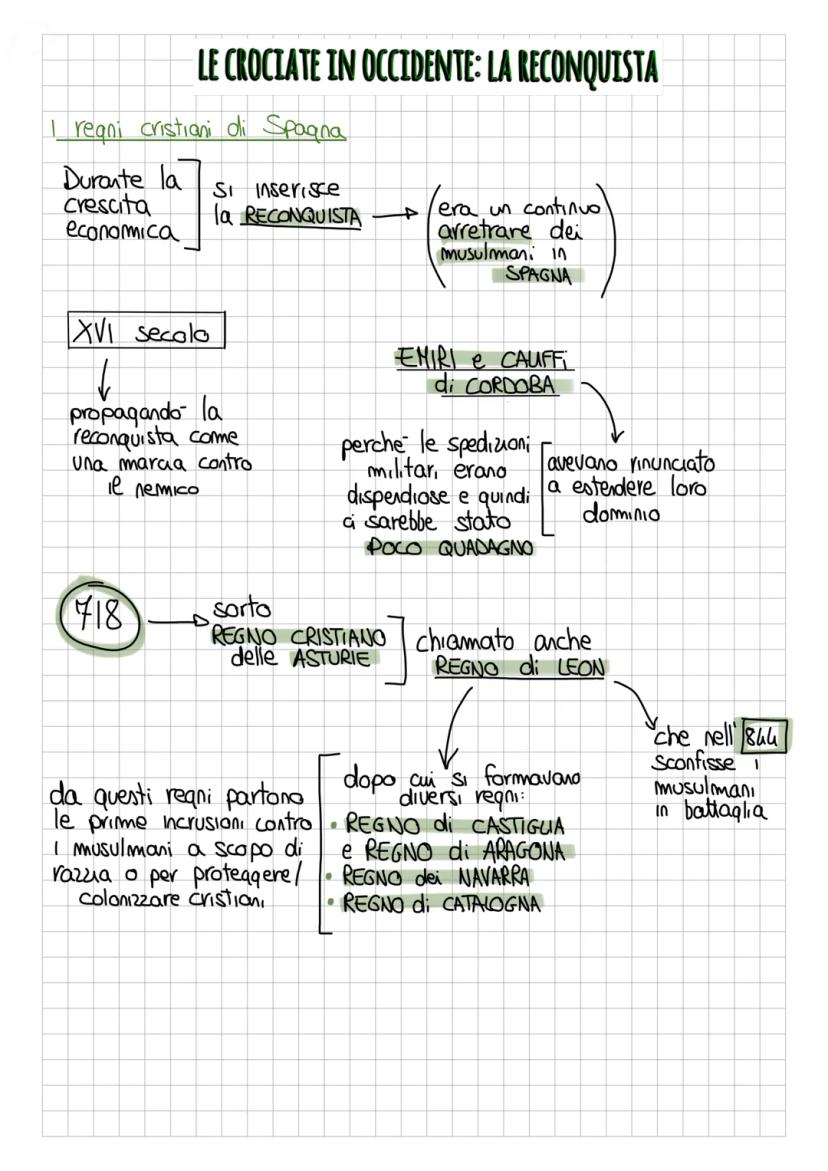 LE CROCIATE IN OCCIDENTE: LA RECONQUISTA
I regni cristiani di Spagna
Durante la
crescita
economica
si inserisce
la RECONQUISTA
(era un continuo
arretrare dei
musulmani in
SPAGNA)
XVI secolo
propagando la
reconquista come
una marcia contro
il nemico
EMIRI e CALIFFI
di CORDOBA
avevano rinunciato
a estendere loro
dominio
perché le spedizioni
militari erano
dispendiose e quindi
ci sarebbe stato
POCO QUADAGNO
718
sorto
REGNO CRISTIANO
delle ASTURIE
chiamato anche
REGNO di LEON
che nell' 844
sconfisse i
musulmani
in battaglia
dopo cui si formavano
diversi regni:
• REGNO di CASTIGLIA
e REGNO di ARAGONA
• REGNO dei NAVARRA
• REGNO di CATALOGNA
da questi regni partono
le prime incrusioni contro
i musulmani a scopo di
razzia o per proteggere/
colonizzare cristiani